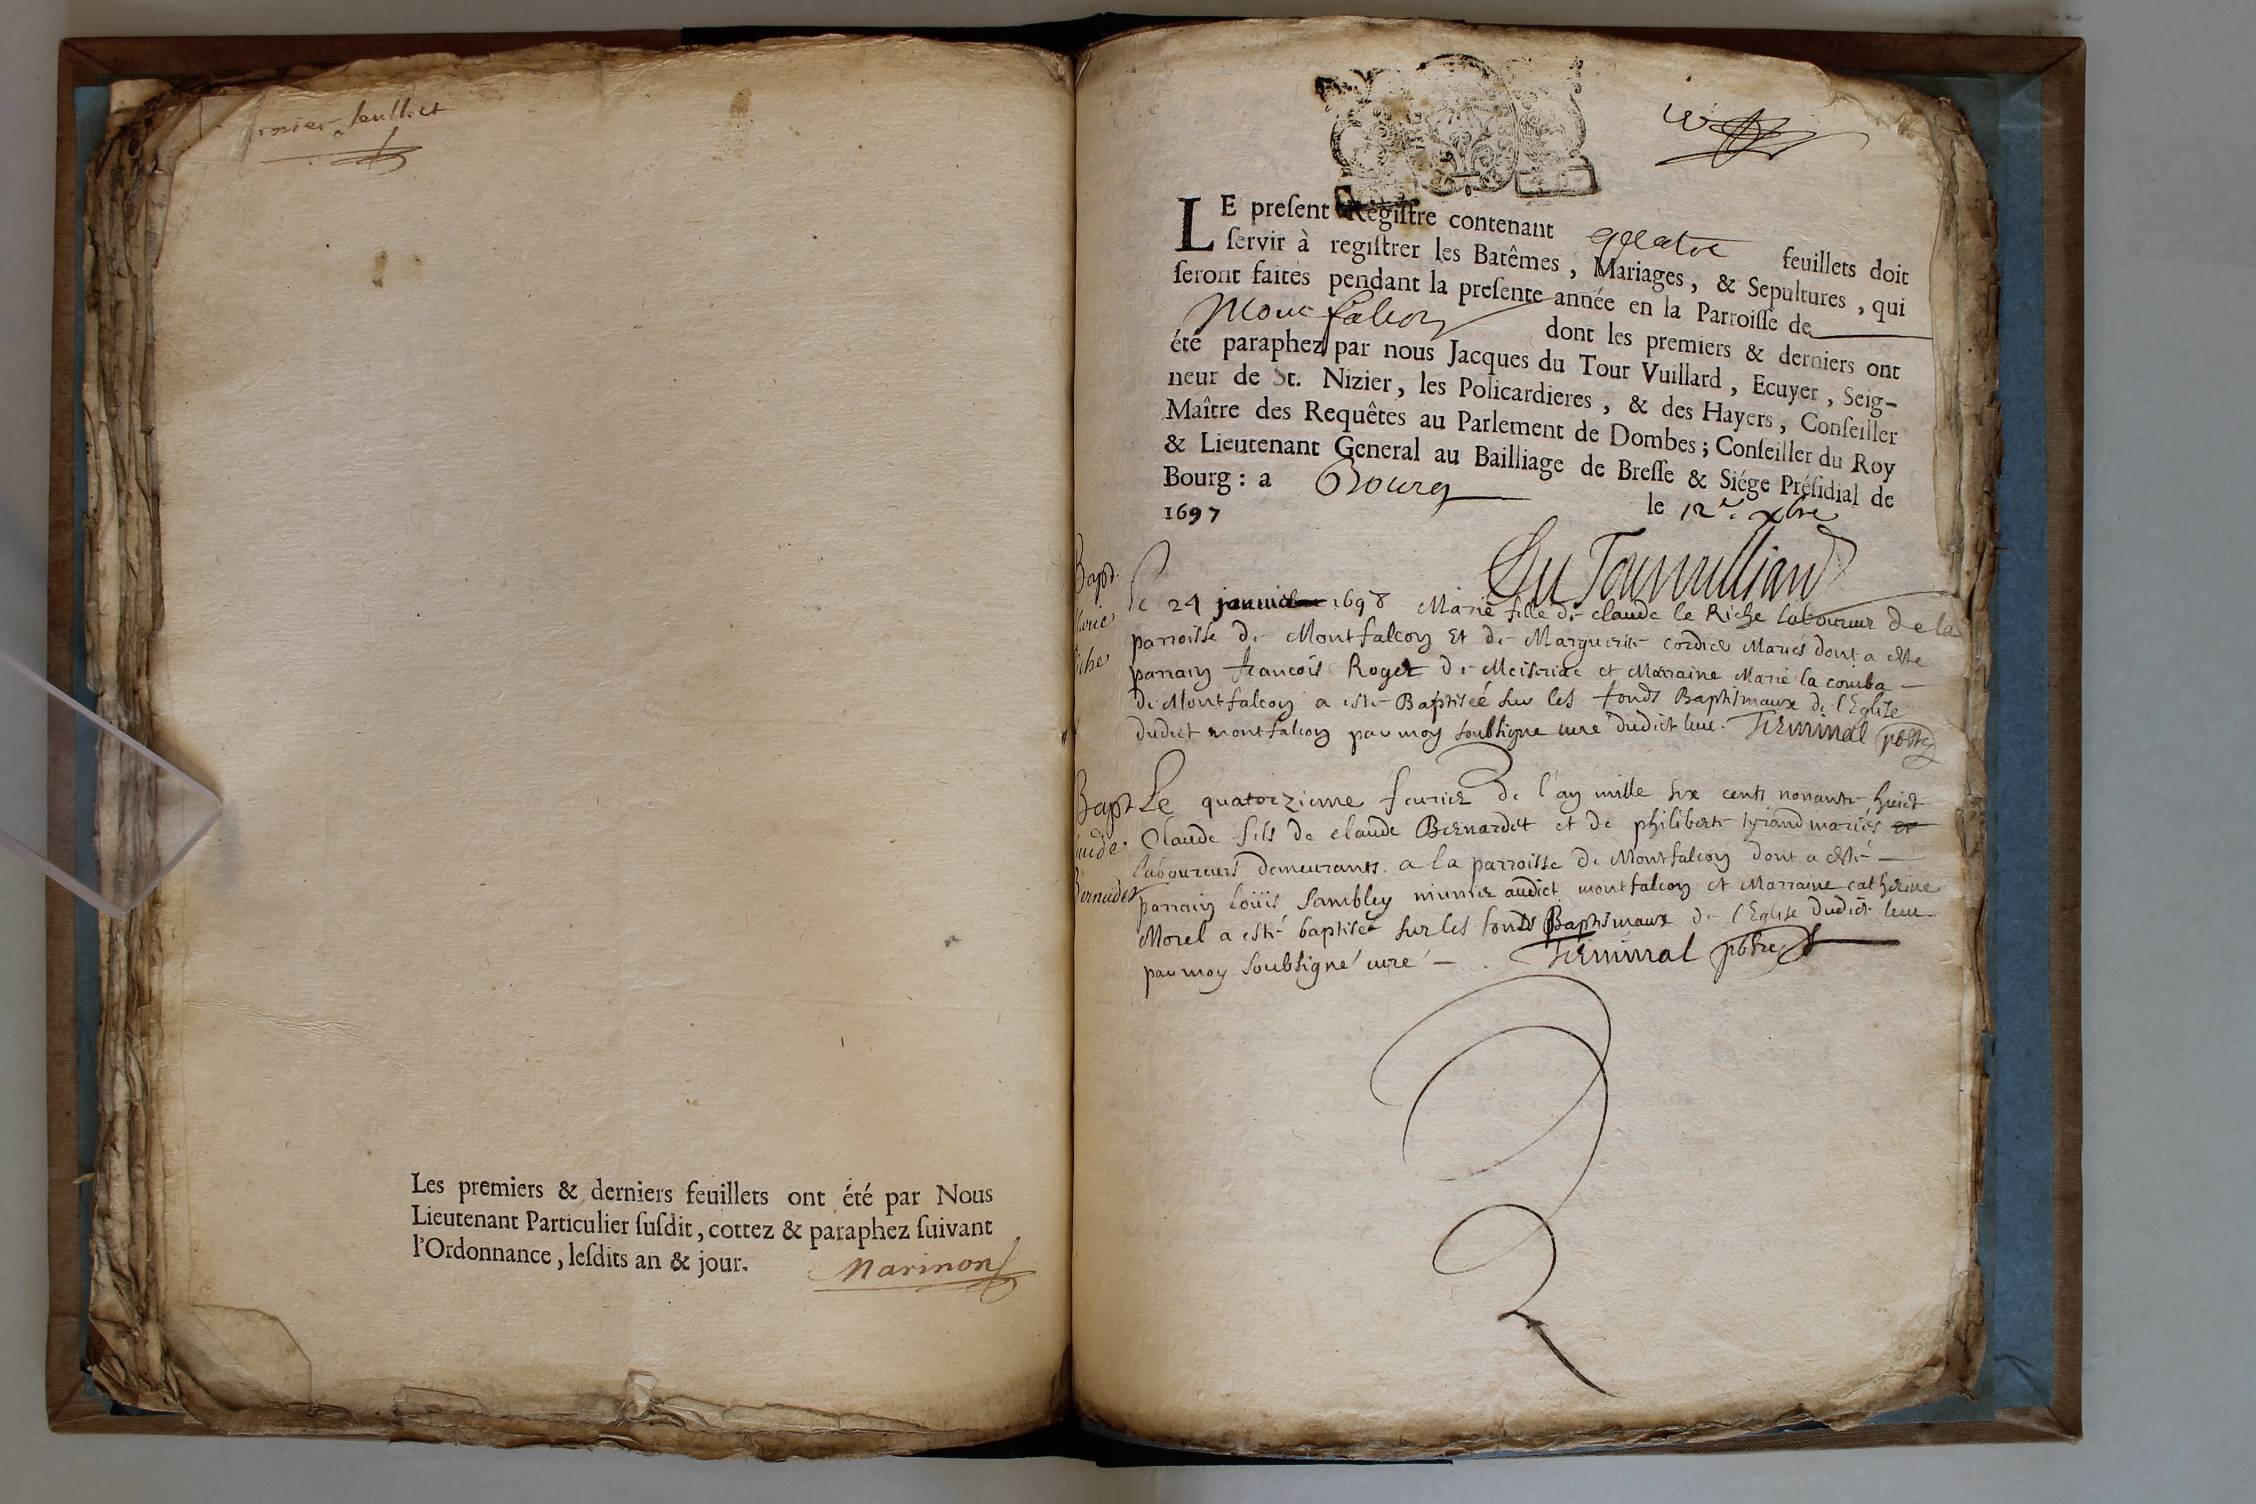 feuillet
Les premiers & derniers feuillets ont été par Nous
Lieutenant Particulier ſuſdit, cottez & paraphez ſuivant
l'Ordonnance, leſdits an & jour.
Marinon
LE preſent Regiſtre contenant quatre feuillets doit
ſervir à regiſtrer les Batêmes, Mariages, & Sepultures, qui
ſeront faites pendant la preſente année en la Parroiſſe de
Montfalcon dont les premiers & derniers ont
été paraphez par nous Jacques du Tour Vuillard, Ecuyer, Seig-
neur de St. Nizier, les Policardieres, & des Hayers, Conſeiller
Maître des Requêtes au Parlement de Dombes; Conſeiller du Roy
& Lieutenant General au Bailliage de Breſſe & Siége Préſidial de
Bourg: a Bourg le 12e. xbre
1697
Du Tourvuilliard
Bapt.
Marie
Riche
Le 24 janvier 1698 Marie fille de claude le Riche laboureur de la
parroisse de Montfalcon et de Marguerite cordier Mariés dont a esté
parrain francois Roget de Meiseriac et Marraine Marie la comba
de Montfalcon a esté Baptiseé sur les fonds Baptismaux de l'Eglise
dudict montfalcon par moy soubsigne curé dudict lieu. Terminal pbstre
Bapt
Claude
Bernadet
Le quatorzieme fevrier de l'an mille six cents nonante huict
Claude fils de claude Bernardet et de philiberte tyrand mariés
laboureurs demeurants a la parroisse de Montfalcon dont a esté
parrain loüis Sambley munier audict montfalcon et Marraine catherine
Morel a esté baptisé sur les fonds Baptismaux de l'Eglise dudict lieu
par moy soubsigné curé Terminal pbstre